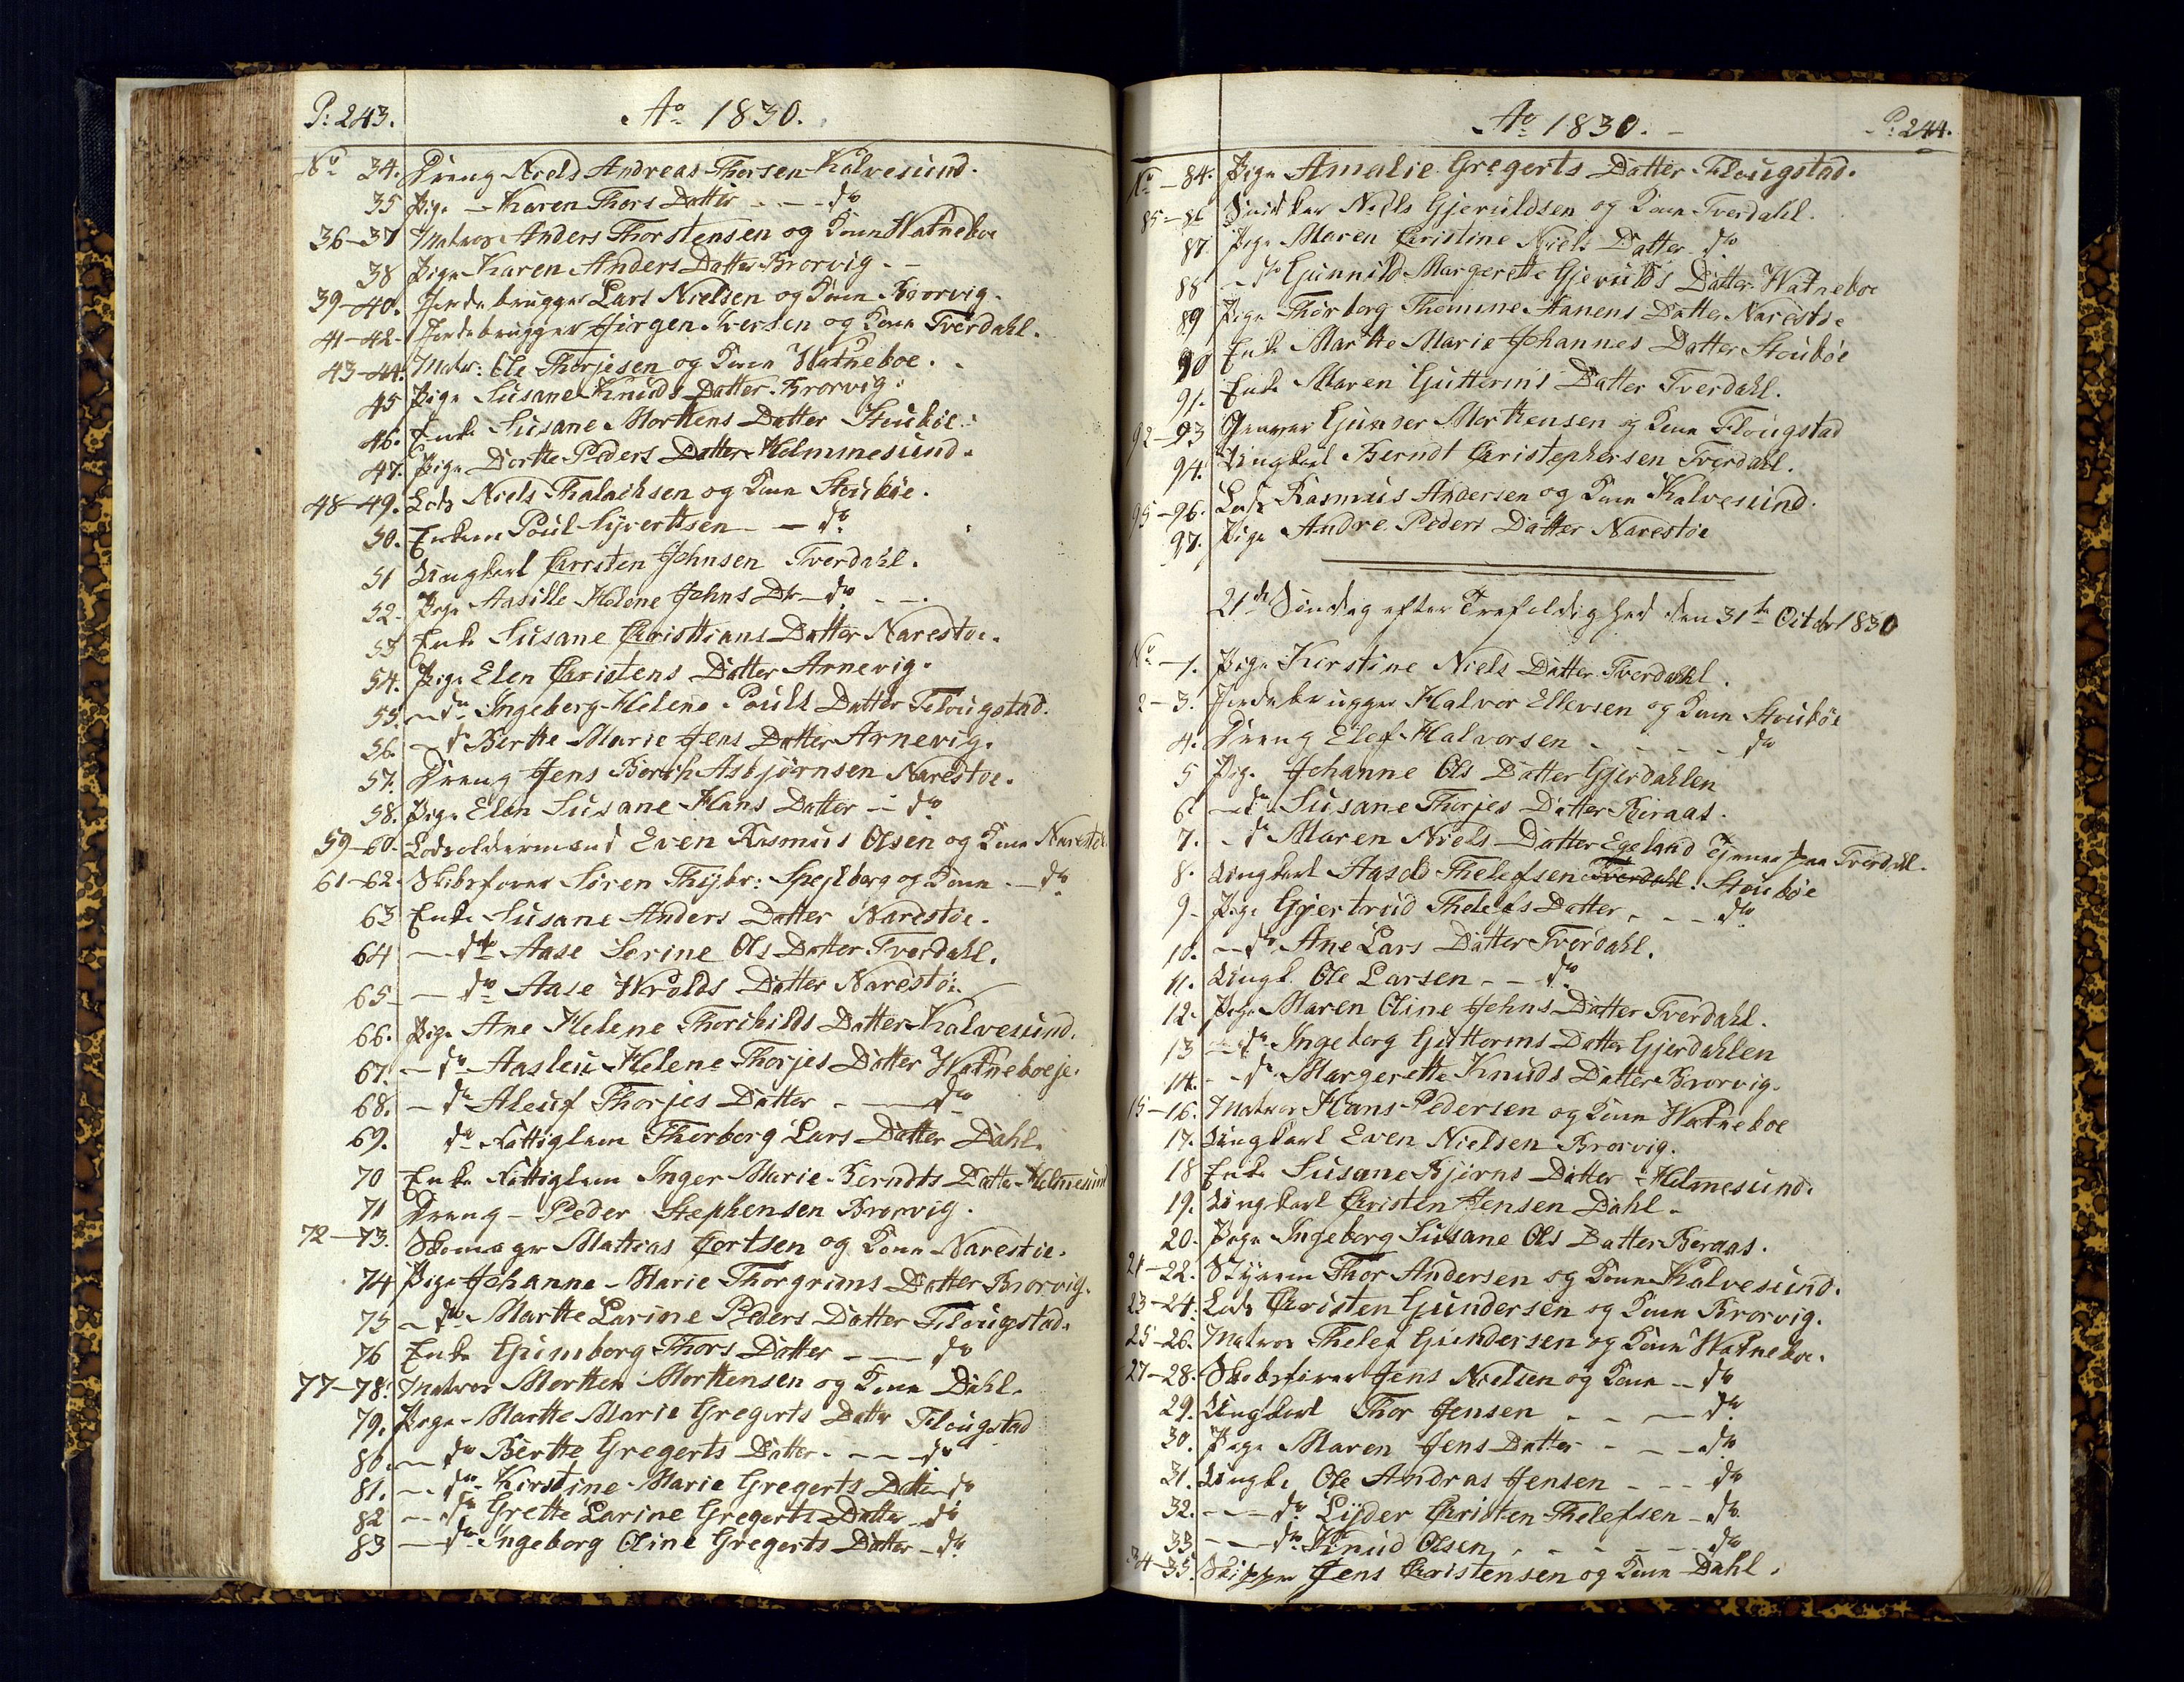 P: 243.
Ao 1830.
No 34. Dreng Niels Andreas Thorsen Kalvesund.
35 Pige - Karen Thors Datter - - - do
36-37 Matros Anders Thorstensen og Kone Watneboe
38 Pige Karen Anders Datter Brorvig. -
39-40. Jordebrugger Lars Nielsen og Kone Brorvig.
41-42- Jordebrugger Jürgen Iversen og Kone Tverdahl.
43-44. Matr: Ole Thorjesen og Kone Watneboe.
45 Pige Susane Knuds Datter Brorvig.
46. Enke Susane Morttens Datter Stoubøe.
47. Pige Dortte Peders Datter Helmmesund.
48-49. Lods Niels Thalachsen og Kone Stoubøe.
50. Enkem Poul Sÿverttsen - - do
51 Ungkarl Christen Johnsen Tverdahl.
52. Pige Aasille Helene Johns Dtr - do - -.
53 Enke Susane Christians Datter Narestøe.
54. Pige Elen Christens Datter Arnevig.
55. - do Ingeborg Helene Pouls Datter Flougstad.
56. - do Bertte Marie Jens Datter Arnevig.
57. Dreng Jens Borth Asbjørnsen Narestøe.
58. Pige Elen Susane Hans Datter - do
59-60. Lodsoldermand Even Rasmus Olsen og Kone Narestøe
61-62. Skibsfører Søren Thÿbr: Spejlberg og Kone - do
63 Enke Susane Anders Datter Narestøe.
64 - do Aase Serine Ols Datter Tverdahl.
65 - do Aase Wrolds Datter Narestøe.
66. Pige Ane Helene Thorchilds Datter Kalvesund.
67. - do Aasleu Helene Thorjes Datter Watneboeje.
68. - do Aleuf Thorjes Datter - - do
69. do Fattiglem Thorborg Lars Datter Dahl.
70 Enke Fattiglem Inger Marie Berndts Datter Helmesund
71 Dreng - Peder Stephensen Brorvig.
72-73. Skomager Mattias Cortsen og Kone Narestøe.
74 Pige Johanne Marie Thorgrims Datter Brorvig.
75 - do Martte Larine Peders Datter Flougstad.
76 Enke Gunnborg Thors Datter - - do
77-78. Matros Mortten Morttensen og Kone Dahl.
79. Pige - Martte Marie Gregerts Datter Flougstad
80. - do Bertte Gregerts Datter. - - do
81. - do Kirstine Marie Gregerts Datter do
82 - do Grette Larine Gregerts Datter do
83 - do Ingeborg Oline Gregerts Datter - do
Ao 1830. -
P: 244.
No - 84. Pige Amalie Gregerts Datter Flougstad.
85-86 Snidker Niels Gjeruldsen og Kone Tverdahl.
87. Pige Maren Christine Niels Datter do
88 - do Gunnild Margerette Gjerulds Datter Watneboe
89 Pige Thorborg Thomine Hanens Datter Narestøe
90 Enke Martte Marie Johannes Datter Stoubøe
91. Enke Maren Gutterms Datter Tverdahl.
92-93 Gunner Morttensen og Kone Flougstad
94. Ungkarl Berndt Christophersen Tverdahl.
95-96. Lods Rasmus Andersen og Kone Kalvesund.
97. Pige Andre Peders Datter Narestøe
21de Søndag efter Trefoldighed den 31te Octobr 1830
No - 1. Pige Kirstine Niels Datter Tverdahl.
2-3. Jordebrugger Halvor Ellevsen og Kone Stoubøe
4. Dreng Elef Halvorsen - - - - do
5 Pige Johanne Ols Datter Gjerdahlen
6 - do Susane Thorjes Datter Beraas.
7. - do Maren Niels Datter Egeland Tjener paa Tverdahl.
8. Ungkarl Aasold Thelefsen Tverdahl. Stoubøe
9. Pige Gjertrud Thelefs Datter, - - do
10. - do Ane Lars Datter Tverdahl.
11. Ungk. Ole Larsen - - do
12. Pige Maren Oline Johns Datter Tverdahl.
13 - do Ingeborg Guttorms Datter Gjerdahlen
14. - do Margerette Knuds Datter Brorvig.
15-16. Matros Hans Pedersen og Kone Watneboe
17. Ungkarl Even Nielsen Brorvig.
18 Enke Susane Bjørns Datter - Helmesund.
19. Ungkarl Christen Jensen Dahl.
20. Pige Ingeborg Susane Ols Datter Beraas.
21-22. Styrm Thor Andersen og Kone Kalvesund.
23-24. Lods Christen Gundersen og Kone Brorvig.
25-26. Matros Thelef Gundersen og Kone Watneboe.
27-28. Skibsfører Jens Nielsen og Kone - do
29. Ungkarl Thor Jensen - - - do
30. Pige Maren Jens Datter - - - do
31. Ungk: Ole Andras Jensen - - - do
32. - - do Lÿder Christen Thelefsen - do
33 - - do Knud Olsen, - - - do
34-35. Skipper Jens Christensen og Kone Dahl.